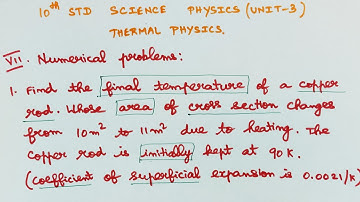 10th STD SCIENCE PHYSICS (UNIT-3)
THERMAL PHYSICS.
VII. Numerical problems:
1. Find the final temperature of a copper
rod. Whose area of cross section changes
from 10m² to 11m² due to heating. The
copper rod is initially kept at 90K.
(Coefficient of superficial expansion is 0.0021/K)